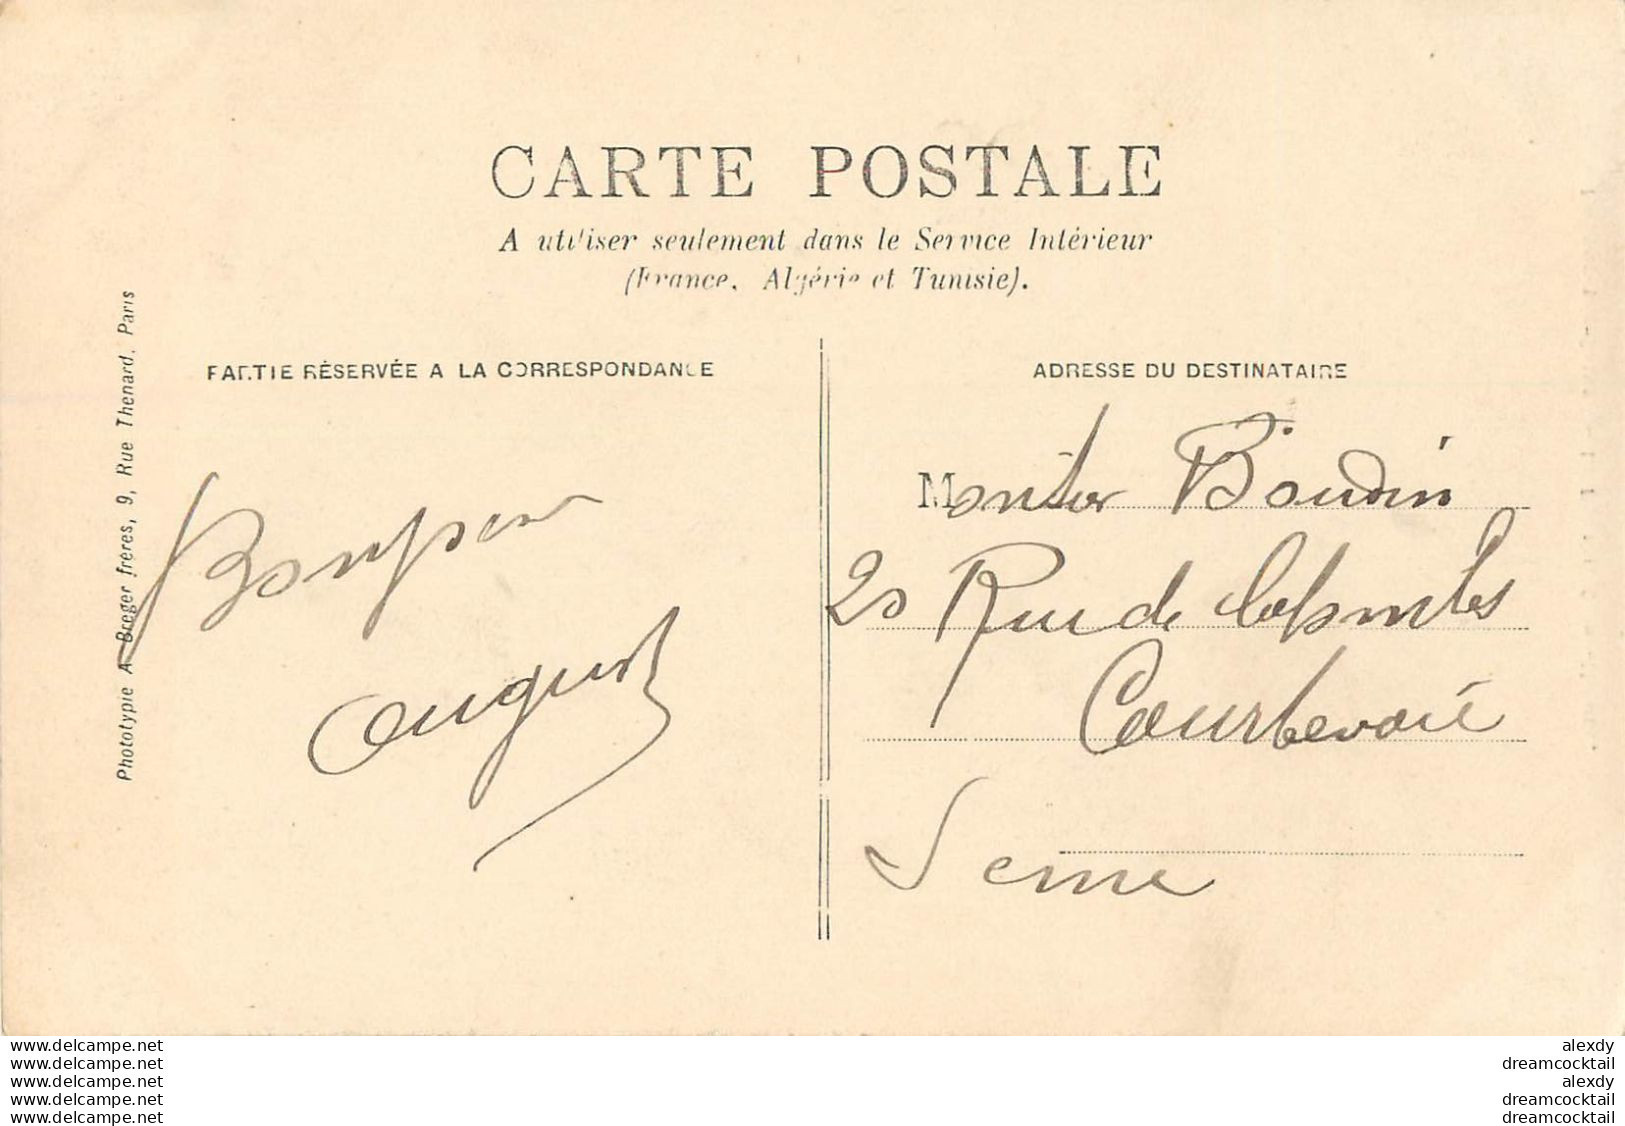 CARTE POSTALE
A utiliser seulement dans le Service Intérieur
(France, Algérie et Tunisie).
PARTIE RÉSERVÉE A LA CORRESPONDANCE
ADRESSE DU DESTINATAIRE
Phototypie A. Breger frères, 9, Rue Thenard, Paris
Boudin
20 Rue de Colombes
Courbevoie
Seine
August
www.delcampe.net
www.delcampe.net
www.delcampe.net
www.delcampe.net
www.delcampe.net
alexdy
dreamcocktail
alexdy
dreamcocktail
dreamcocktail